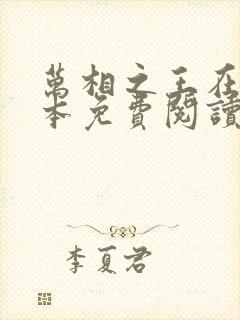 萬相之王在
本免費閱讀
李夏君